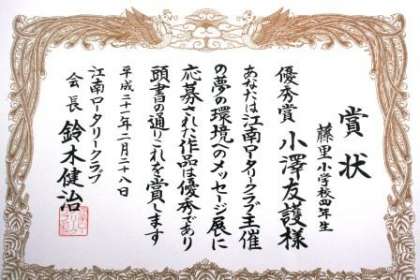 賞状
藤里小学校四年生
優秀賞 小澤友護様
あなたは江南ロータリークラブ主催
の夢の環境へのメッセージ展に
応募された作品は優秀であり
頭書の通りこれを賞します
平成二十一年二月二十八日
江南ロータリークラブ
会長 鈴木健治